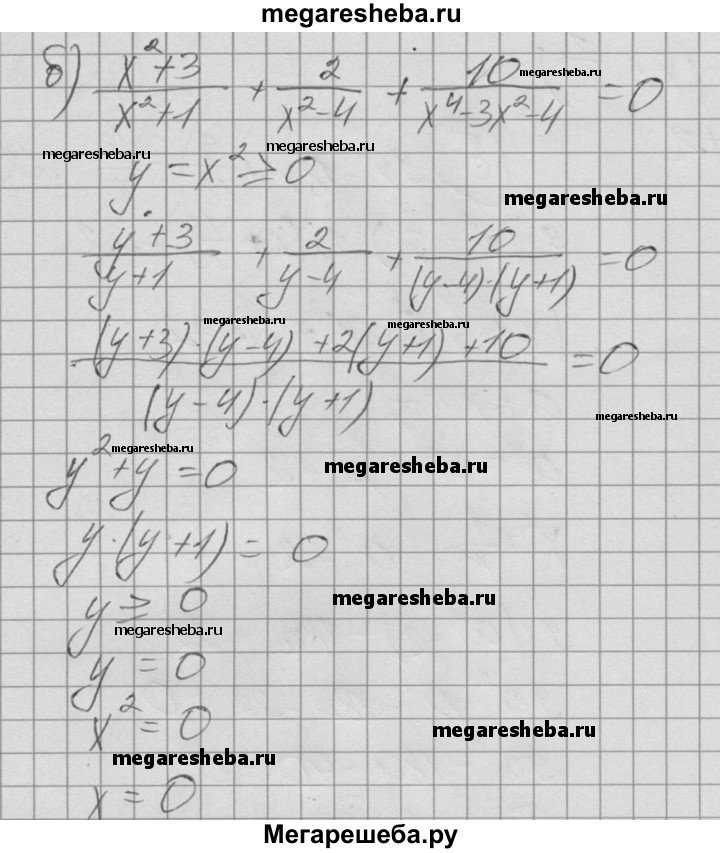 megaresheba.ru
б) (x²+3)/(x²+1) + 2/(x²-4) + 10/(x⁴-3x²-4) = 0
megaresheba.ru
megaresheba.ru
megaresheba.ru
y = x² ≥ 0
megaresheba.ru
(y+3)/(y+1) + 2/(y-4) + 10/((y-4)·(y+1)) = 0
megaresheba.ru
megaresheba.ru
((y+3)·(y-4)+2(y+1)+10)/((y-4)·(y+1)) = 0
megaresheba.ru
megaresheba.ru
y²+y=0
megaresheba.ru
y·(y+1) = 0
y ≥ 0
megaresheba.ru
megaresheba.ru
y = 0
x² = 0
megaresheba.ru
megaresheba.ru
x = 0
Мегарешеба.ру